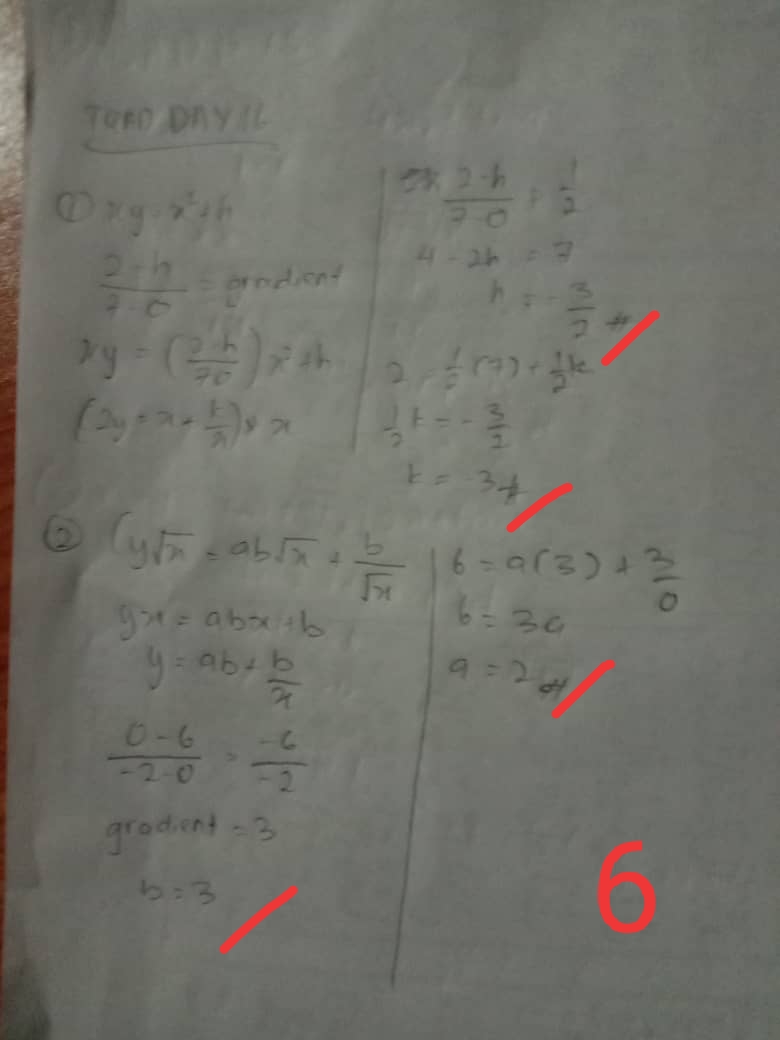 ① xy = x² + h
2-h / 7-0 = gradient
xy = (2-h / 70) x² + h
(2y = x + k/x) × x
2-h / 7-0 = 1/2
4 - 2h = 7
h = -3/2 #
2 = 1/2 (7) + 1/2 k
1/2 k = -3/2
k = -3 #
② (y√x = ab√x + b/√x
yx = abx + b
y = ab + b/x
0-6 / -2-0 = -6/-2
gradient = 3
b = 3
6 = a(3) + 3/0
6 = 3a
a = 2 #
6